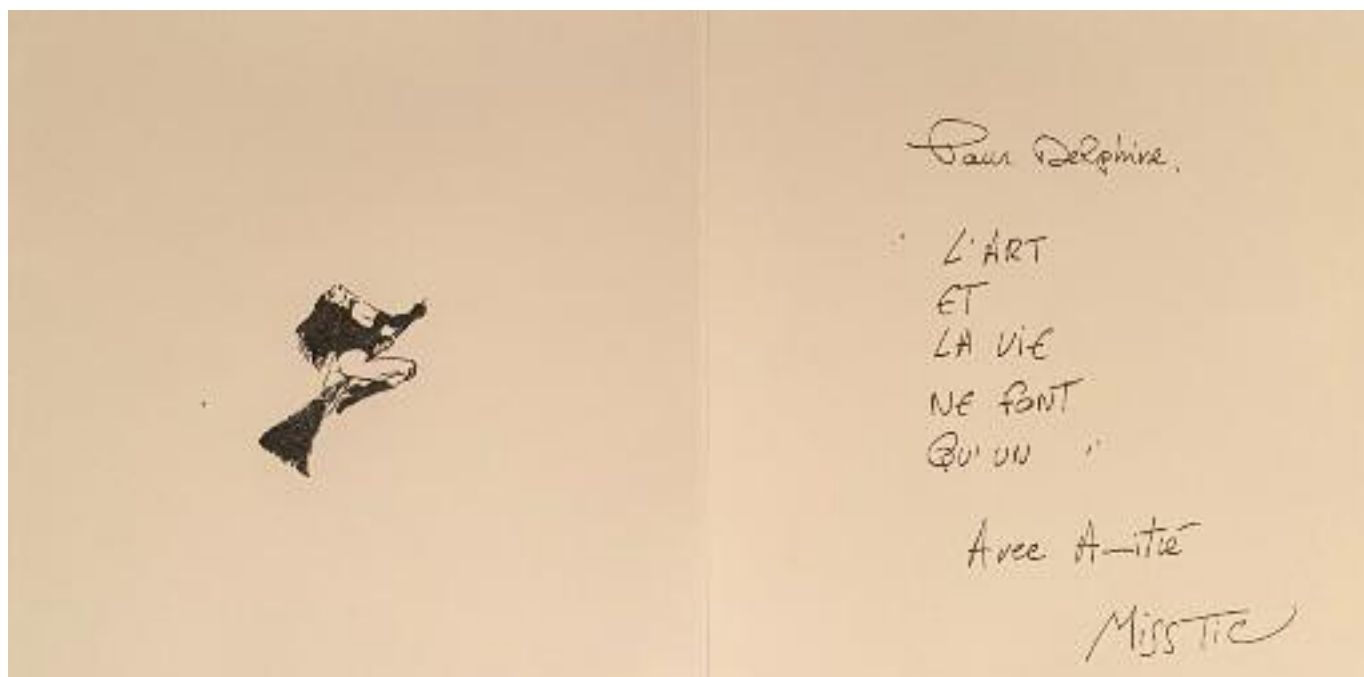 Pour Delphine,
" L'ART
ET
LA ViE
NE FONT
QU'UN "
Avec Amitié
MissTic